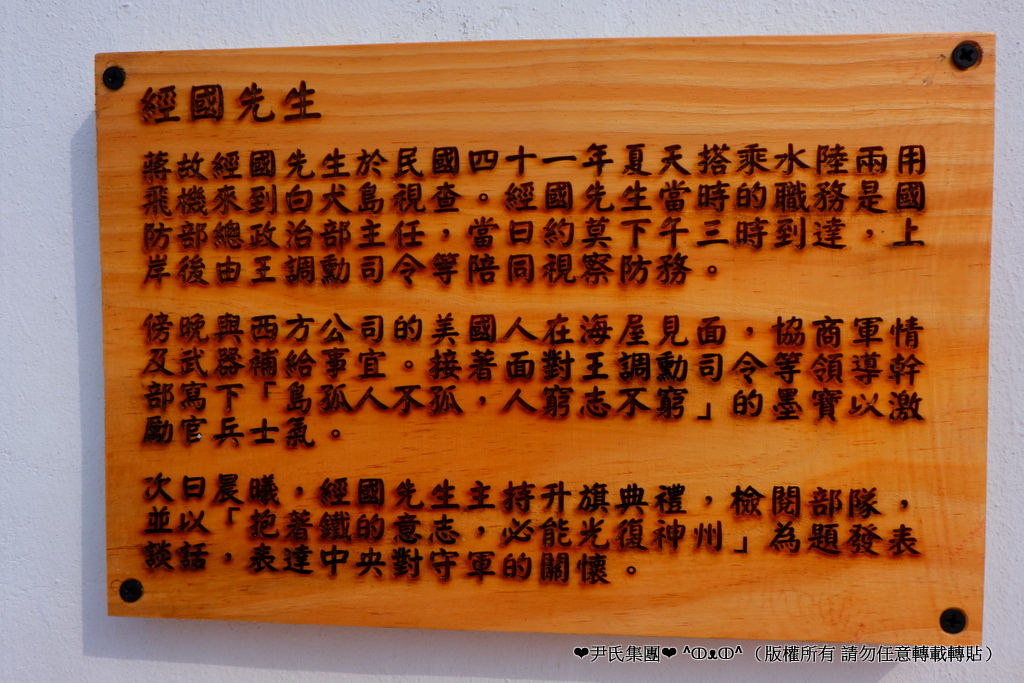 經國先生
蔣故經國先生於民國四十一年夏天搭乘水陸兩用
飛機來到白犬島視查。經國先生當時的職務是國
防部總政治部主任，當日約莫下午三時到達，上
岸後由王調勳司令等陪同視察防務。
傍晚與西方公司的美國人在海屋見面，協商軍情
及武器補給事宜。接著面對王調勳司令等領導幹
部寫下「島孤人不孤，人窮志不窮」的墨寶以激
勵官兵士氣。
次日晨曦，經國先生主持升旗典禮，檢閱部隊，
並以「抱著鐵的意志，必能光復神州」為題發表
談話，表達中央對守軍的關懷。
❤尹氏集團❤ ^ↀᴥↀ^ （版權所有 請勿任意轉載轉貼）